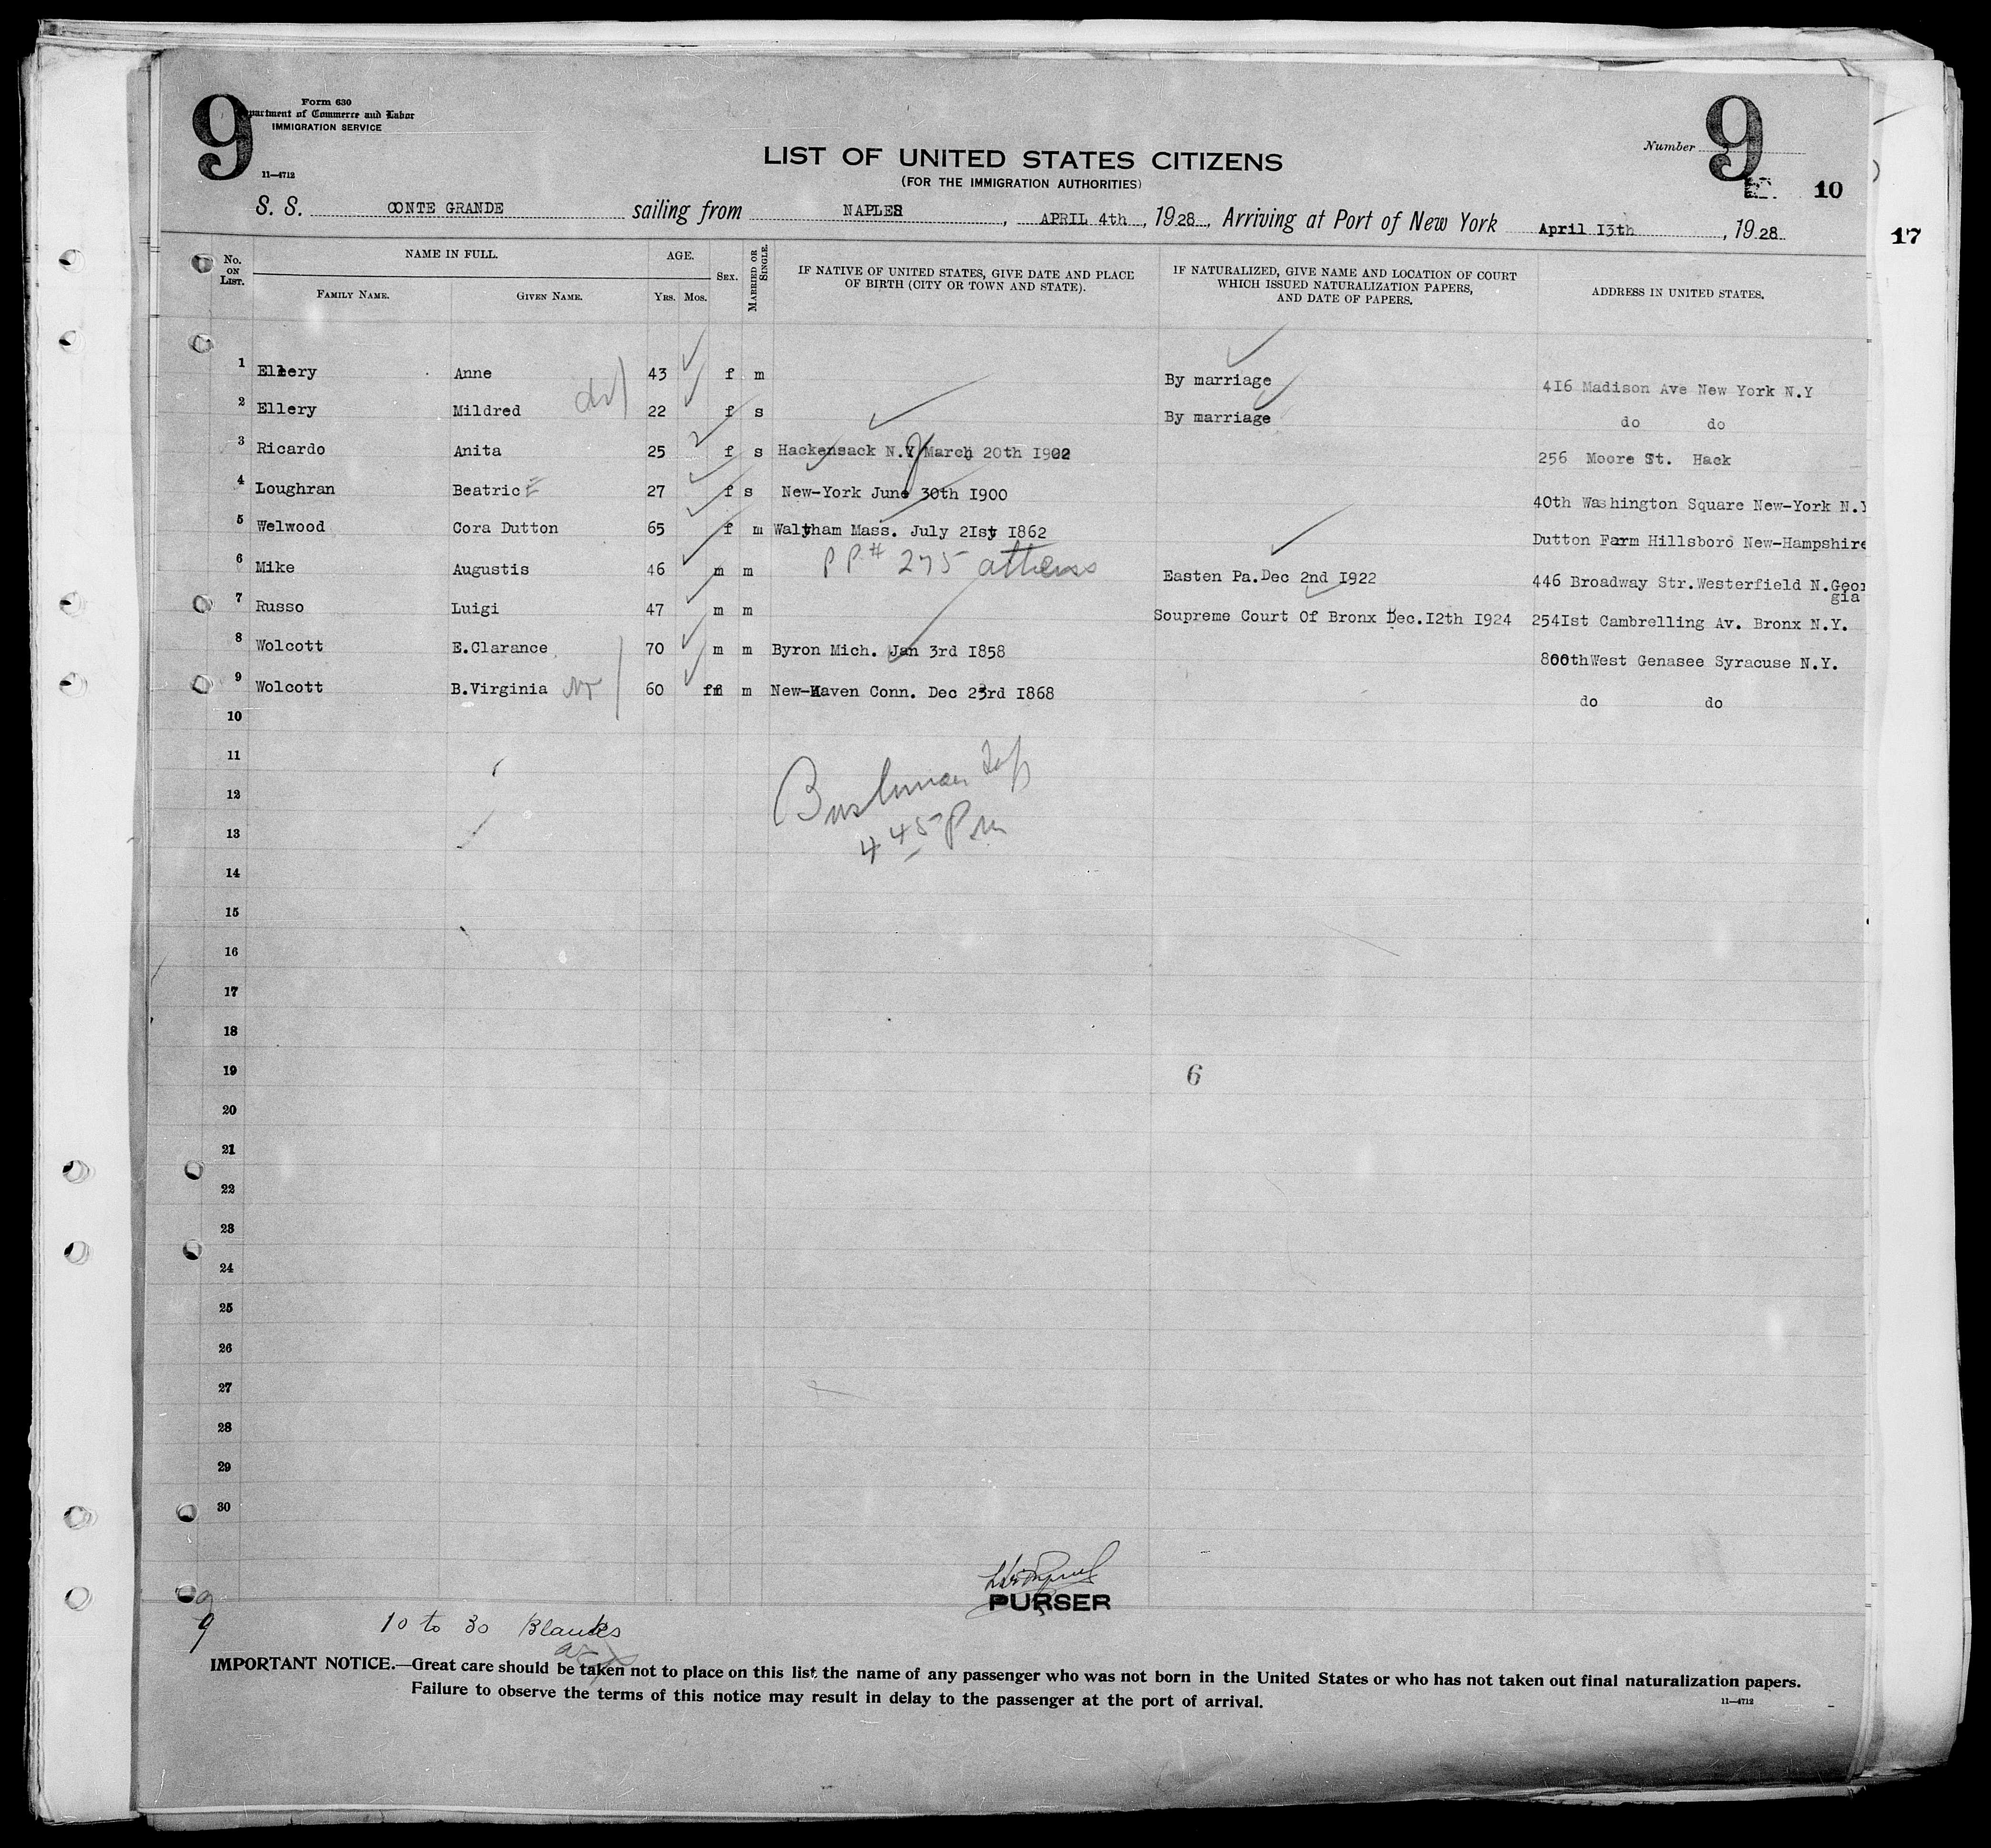 9
Form 630
Department of Commerce and Labor
IMMIGRATION SERVICE
11—4712
LIST OF UNITED STATES CITIZENS
(FOR THE IMMIGRATION AUTHORITIES)
Number 9
10
17
S. S. CONTE GRANDE sailing from NAPLES, APRIL 4th, 1928, Arriving at Port of New York April 13th, 1928
No. ON LIST. NAME IN FULL. AGE. SEX. MARRIED OR SINGLE. IF NATIVE OF UNITED STATES, GIVE DATE AND PLACE OF BIRTH (CITY OR TOWN AND STATE). IF NATURALIZED, GIVE NAME AND LOCATION OF COURT WHICH ISSUED NATURALIZATION PAPERS, AND DATE OF PAPERS. ADDRESS IN UNITED STATES.
FAMILY NAME. GIVEN NAME. YRS. MOS.
1 Ellery Anne 43 f m By marriage 416 Madison Ave New York N.Y
2 Ellery Mildred 22 f s By marriage do do
3 Ricardo Anita 25 f s Hackensack N.Y March 20th 1902 256 Moore St. Hack
4 Loughran BeatricE 27 f s New-York June 30th 1900 40th Washington Square New-York N.Y
5 Welwood Cora Dutton 65 f m Waltham Mass. July 21st 1862 Dutton Farm Hillsboro New-Hampshire
PP.# 275 athens
6 Mike Augustis 46 m m Easten Pa.Dec 2nd 1922 446 Broadway Str.Westerfield N.Geor
gia
7 Russo Luigi 47 m m Soupreme Court Of Bronx Dec.12th 1924 2541st Cambrelling Av. Bronx N.Y.
8 Wolcott E.Clarance 70 m m Byron Mich. Jan 3rd 1858 800thWest Genasee Syracuse N.Y.
9 Wolcott B.Virginia 60 f m New-Haven Conn. Dec 23rd 1868 do do
10
11
12
13
4 45 Pm
14
15
16
17
18
19
6
20
21
22
23
24
25
26
27
28
29
30
PURSER
9
9
10 to 30 Blanks
IMPORTANT NOTICE.—Great care should be taken not to place on this list the name of any passenger who was not born in the United States or who has not taken out final naturalization papers.
Failure to observe the terms of this notice may result in delay to the passenger at the port of arrival.
11—4712